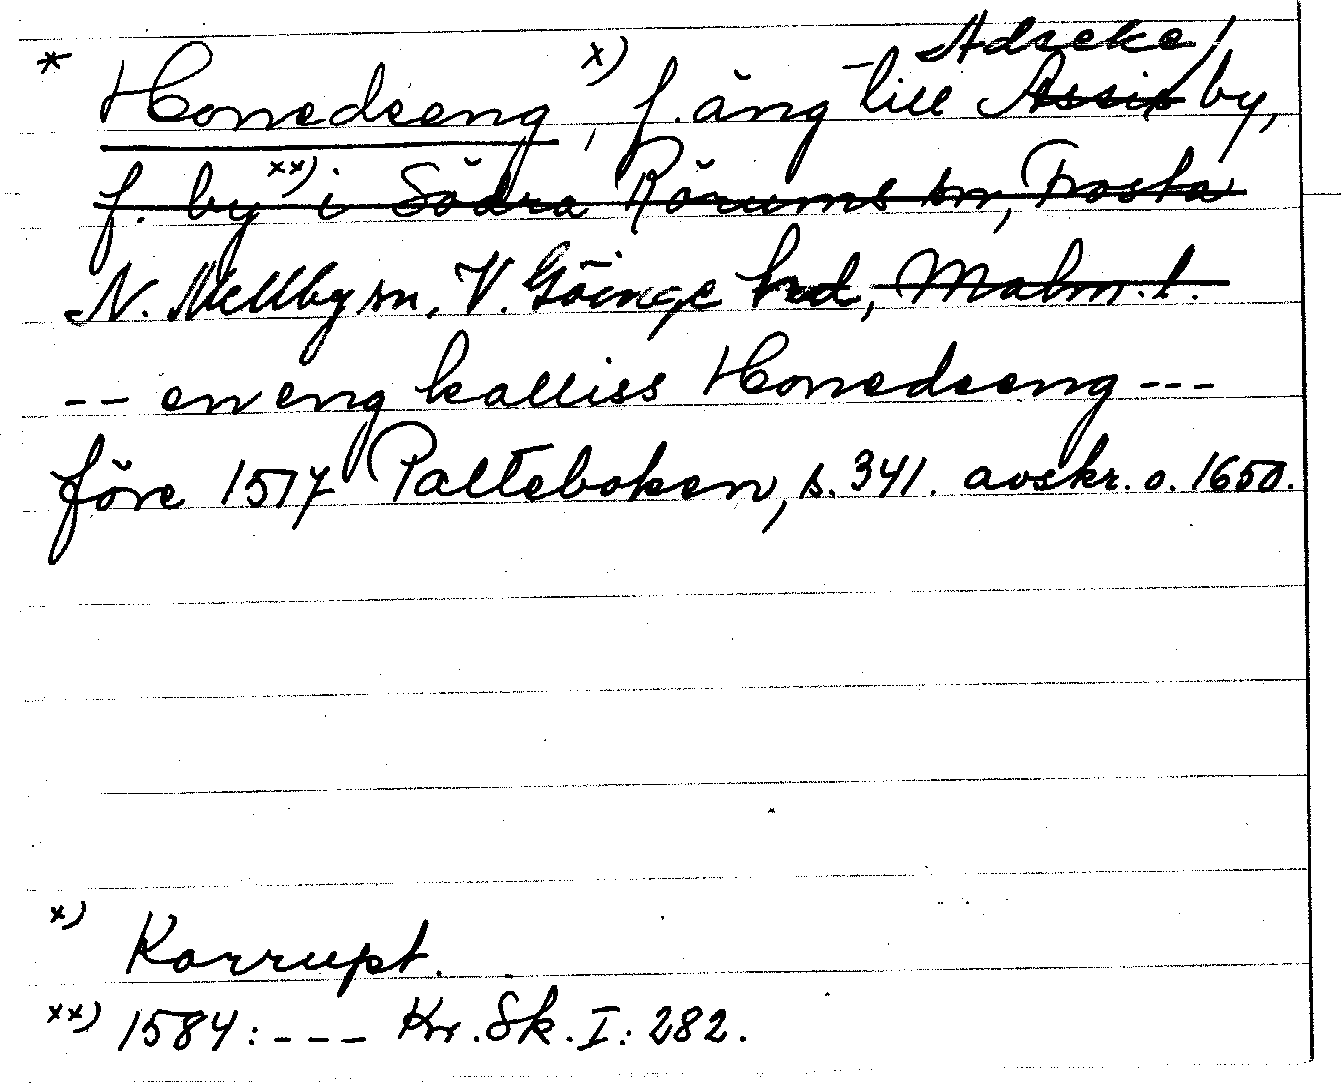 * Honedseng, x) f. äng till Adseke/ Assis by,
f. by xx) i Södra Rörums sn, Frosta
N. Mellby sn, V. Göinge hd, Malm. l.
-- en eng kalliss Honedseng ---
före 1517 Palteboken, s. 341. avskr. o. 1650.
x) Korrupt.
xx) 1584: --- Kr. Sk. I: 282.